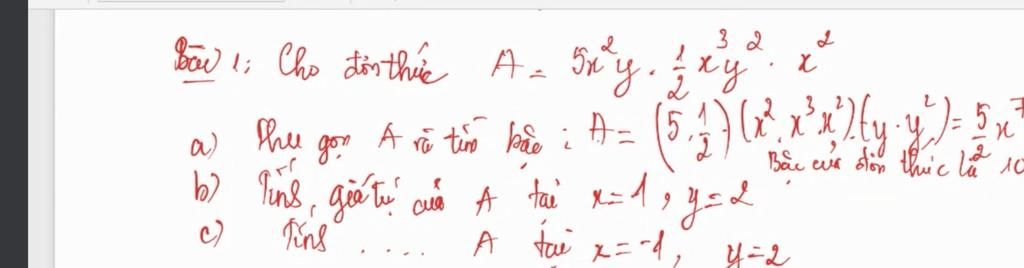 Bài 1: Cho đơn thức A = 5x²y · 1/2 x³y² · x²
a) Thu gọn A rồi tìm bậc: A = (5 · 1/2) (x² · x³ · x²) (y · y²) = 5/2 x⁷
Bậc của đơn thức là 10
b) Tính giá trị của A tại x = 1, y = 2
c) Tính .... A tại x = -1, y = 2